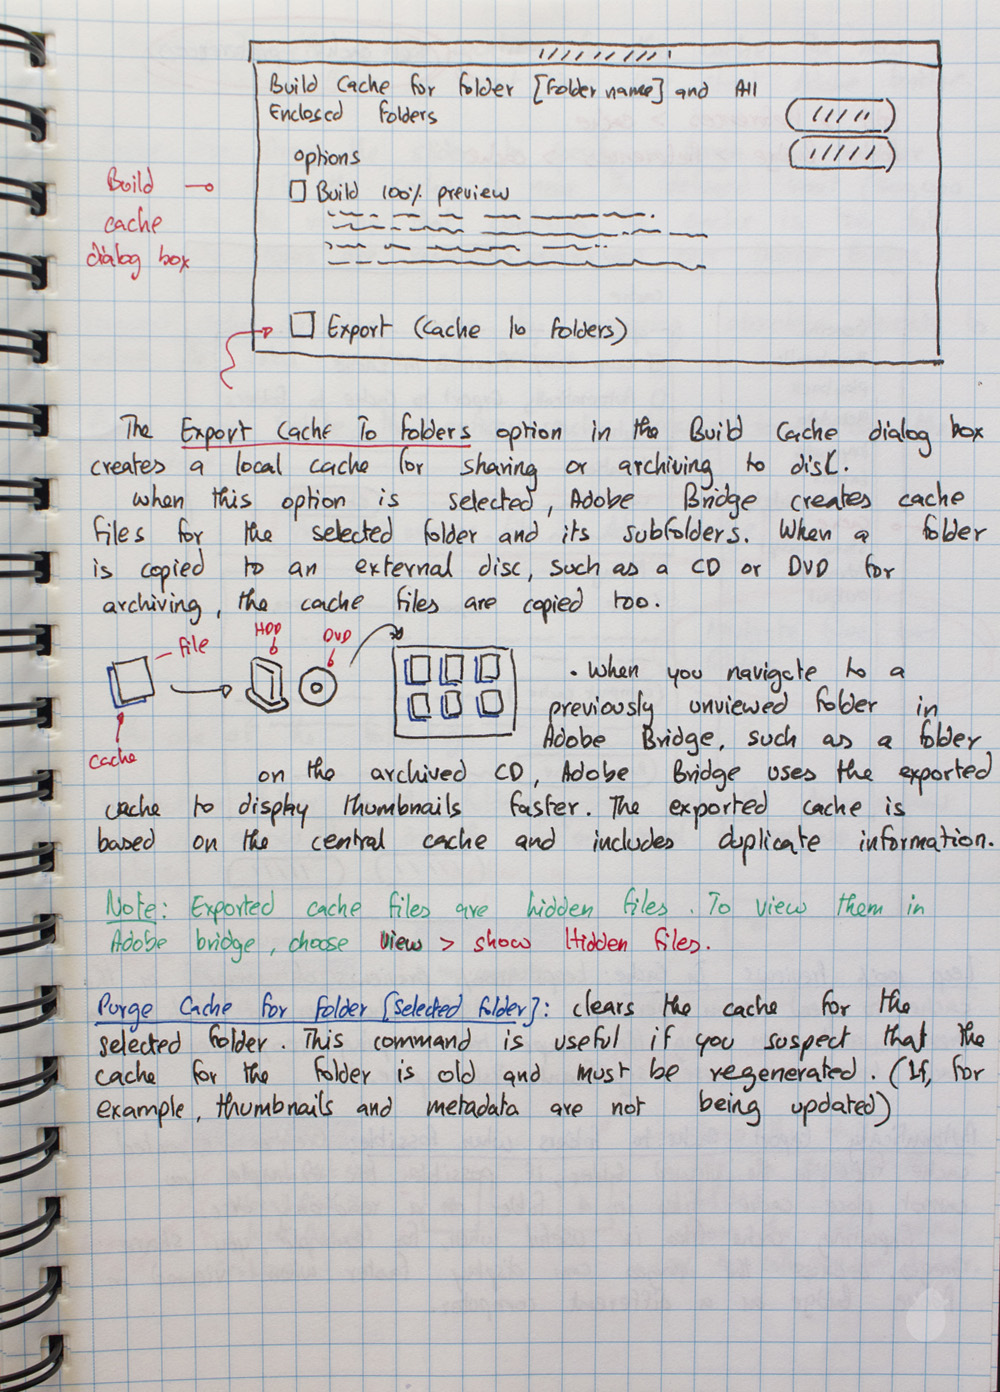 Build Cache for Folder [Folder name] and All
Enclosed Folders
options
Build 100% preview
Build
cache
dialog box
Export (Cache to Folders)
The Export Cache To Folders option in the Build Cache dialog box
creates a local cache for sharing or archiving to disk.
when this option is selected, Adobe Bridge creates cache
files for the selected folder and its subfolders. When a folder
is copied to an external disc, such as a CD or DVD for
archiving, the cache files are copied too.
file
HDD
DVD
cache
. When you navigate to a
previously unviewed folder in
Adobe Bridge, such as a folder
on the archived CD, Adobe Bridge uses the exported
cache to display thumbnails faster. The exported cache is
based on the central cache and includes duplicate information.
Note: Exported cache files are hidden files. To view them in
Adobe bridge, choose view > show Hidden files.
Purge Cache for Folder [selected folder]: clears the cache for the
selected folder. This command is useful if you suspect that the
cache for the folder is old and must be regenerated. (If, for
example, thumbnails and metadata are not being updated)